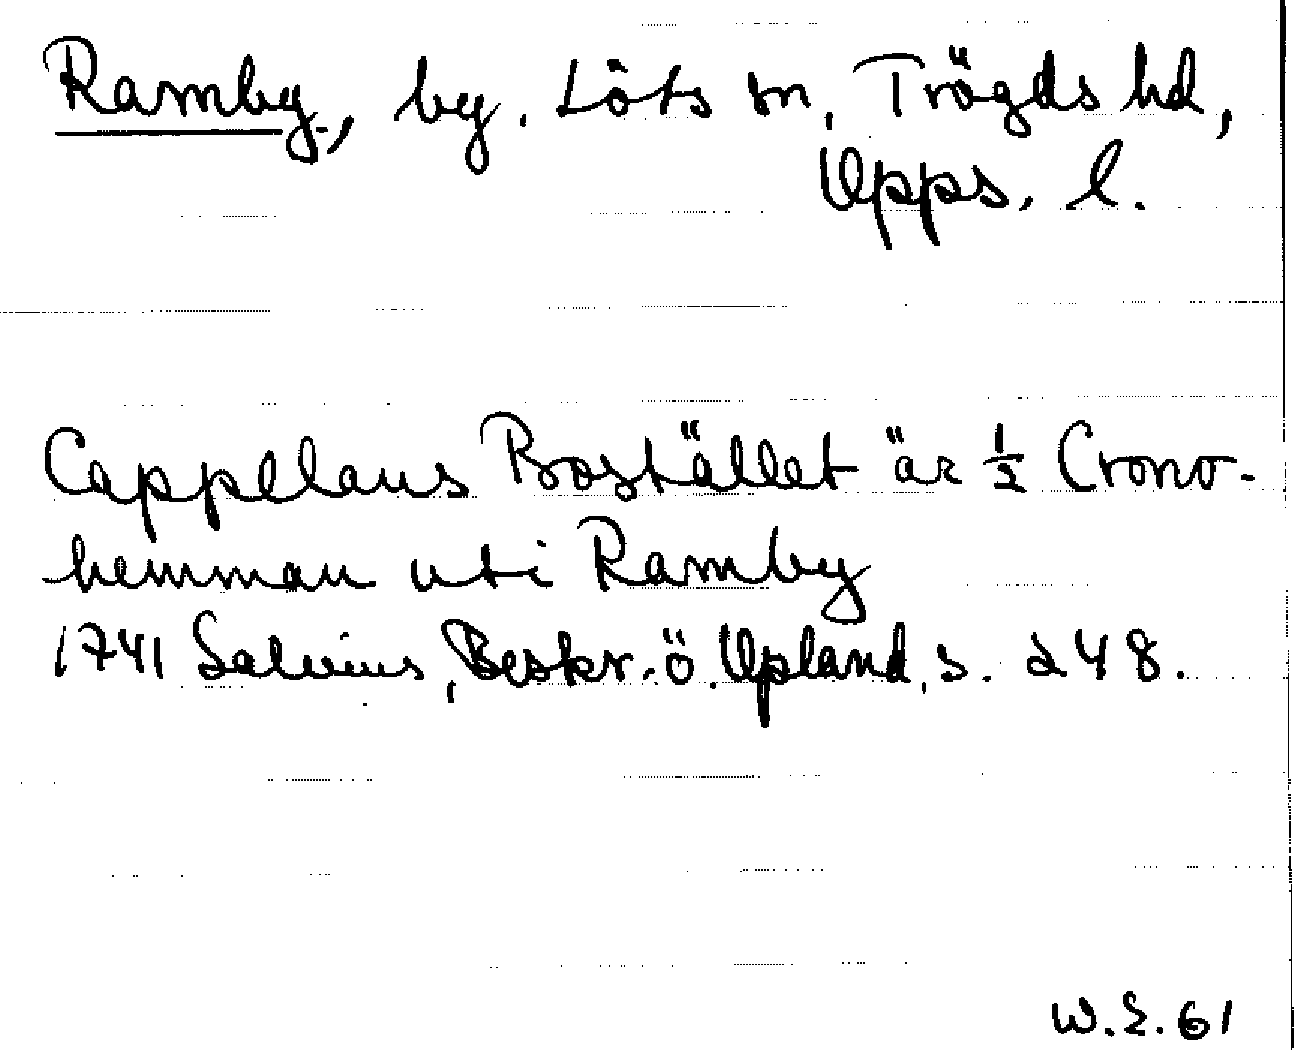 Ramby, by. Löts sn, Trögds hd,
Upps. l.
Cappellans Bostället är ½ Crono-
hemman uti Ramby
1741 Salvius, Beskr. ö. Upland, s. 248.
W.S. 61